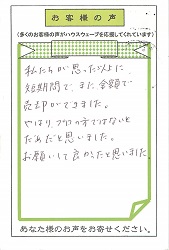 お客様の声
(多くのお客様の声がハウスウェーブを応援してくれています)
私たちが思った以上に
短期間で、また金額で
売却ができました。
やはり、プロの方ではないと
だめだと思いました。
お願いして良かったと思いました
あなた様のお声をお寄せください。